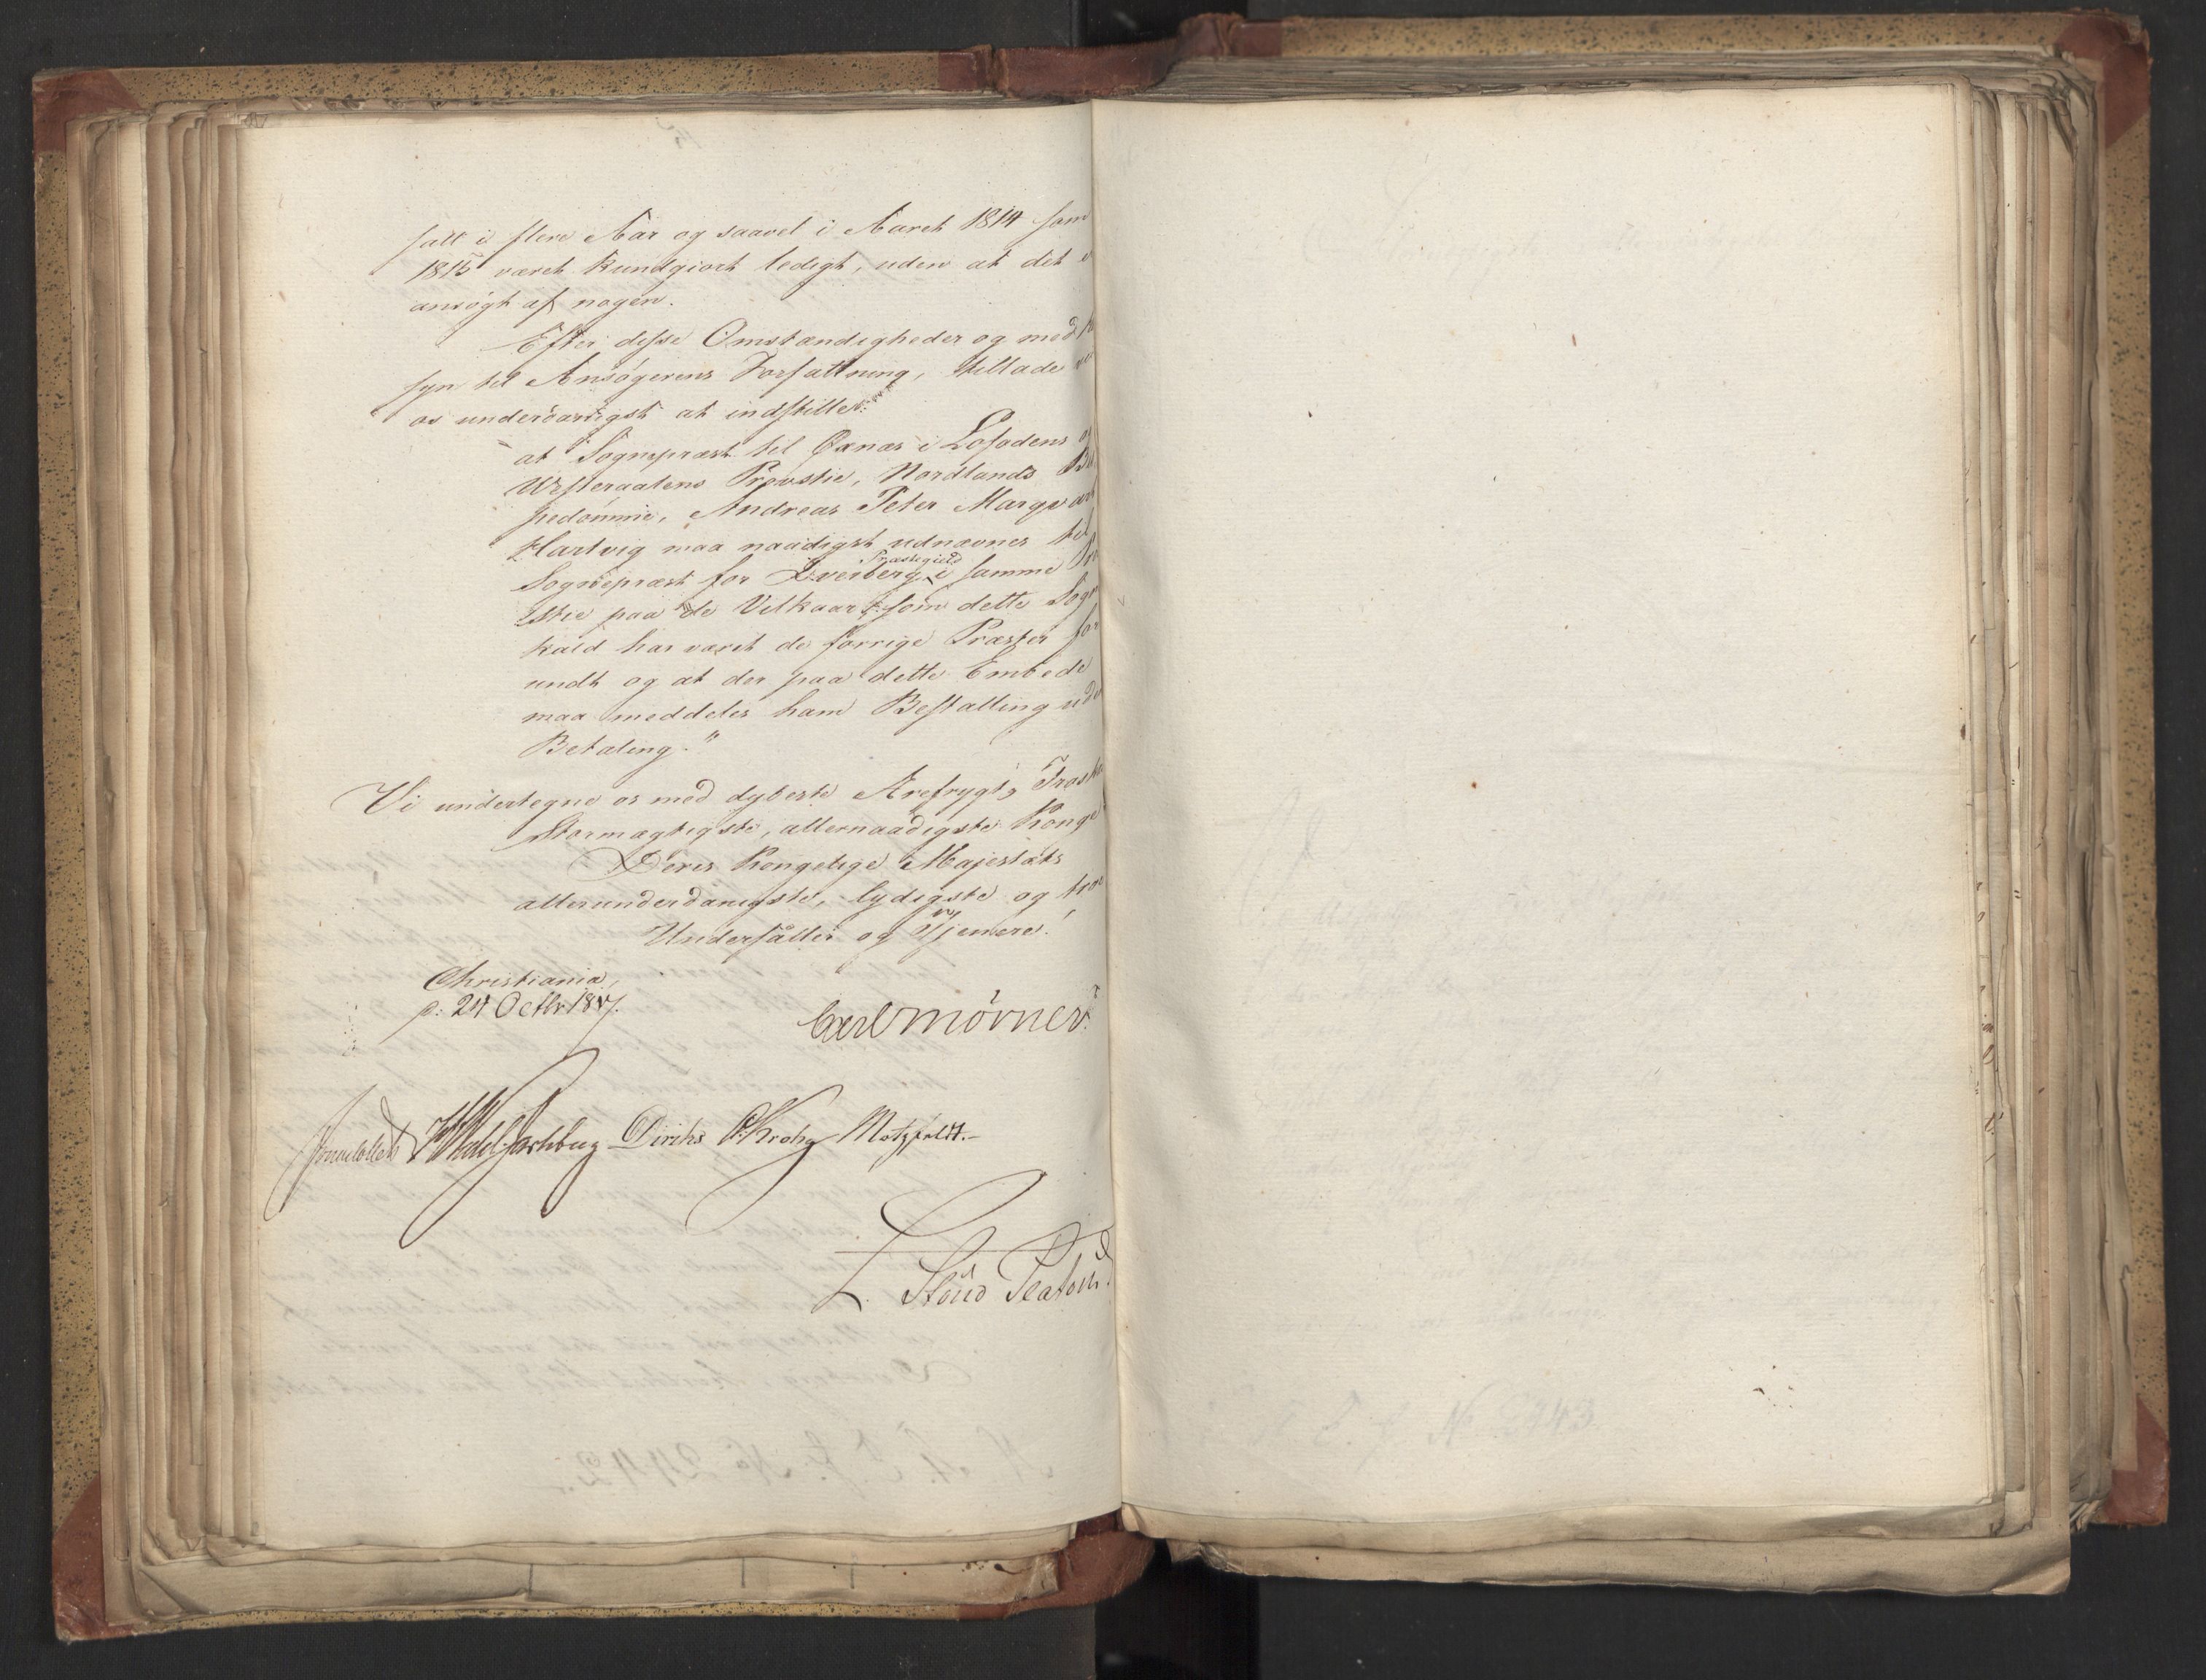 sat i flere Aar og saavel i Aaret 1814 som
1815 været kundgiort ledigt, uden at det e
ansøgt af nogen.
Efter disse Omstændigheder og med
syn til Ansøgerens Forfattning, tillade
os underdanigst at indstille:
at Sognepræst til Øxnæs i Lofodens o
Westeraalens Provstie, Nordlands Bi
spedømme, Andreas Peter Marqvard
Hartvig maa naadigst udnævnes til
Præstegield
Sognepræst for Dverberg i samme Pro
stie paa de Vilkaar, som dette Sogne
kald har været de forrige Præster for
undt og at der paa dette Embede
maa meddeles ham Bestalling uden
Betaling."
Vi undertegne os med dybeste Ærefrygt, Troska
Stormægtigste, allernaadigste Konge
Deres Kongelige Majestæts
allerunderdanigste, lydigste og troe
Undersåtter og Tjenere!
Christiania,
p: 24 Octbr 1817.
Carl Mörner.
Sommerhielm HWedelJarlsberg Diriks CKrohg Motzfeldt.
L. Stoud Platou
N. A. E. f. No 2442.
No 2443